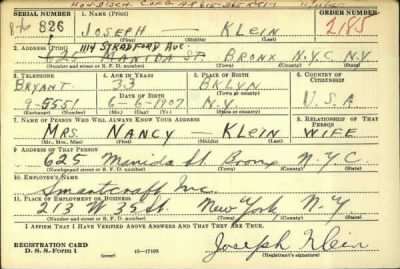 HON. DISCH.
1. NAME (Print)
SERIAL NUMBER
826 JOSEPH — KLEIN 2185
(First) (Middle) (Last)
2. ADDRESS (Print) 1114 STRATFORD AVE.
625 MANIDA ST. BRONX N.Y.C N.Y
(Number and street or R. F. D. number) (Town) (County) (State)
3. TELEPHONE 4. AGE IN YEARS 5. PLACE OF BIRTH 6. COUNTRY OF CITIZENSHIP
BRYANT 33 BKLYN
(Town or county)
DATE OF BIRTH
9-5551 6-6-1907 N.Y. U.S.A
(Exchange) (Number) (Mo.) (Day) (Yr.) (State or country)
7. NAME OF PERSON WHO WILL ALWAYS KNOW YOUR ADDRESS 8. RELATIONSHIP OF THAT PERSON
MRS. NANCY — KLEIN WIFE
(Mr., Mrs., Miss) (First) (Middle) (Last)
9. ADDRESS OF THAT PERSON
625 Manida St. Bronx N.Y.C.
(Number and street or R. F. D. number) (Town) (County) (State)
10. EMPLOYER'S NAME
Smartcraft Inc.
11. PLACE OF EMPLOYMENT OR BUSINESS
213 W 35 St. New York, N.Y.
(Number and street or R. F. D. number) (Town) (County) (State)
I AFFIRM THAT I HAVE VERIFIED ABOVE ANSWERS AND THAT THEY ARE TRUE.
REGISTRATION CARD
D. S. S. Form 1 (over) 16—17105 Joseph Klein
(Registrant's signature)